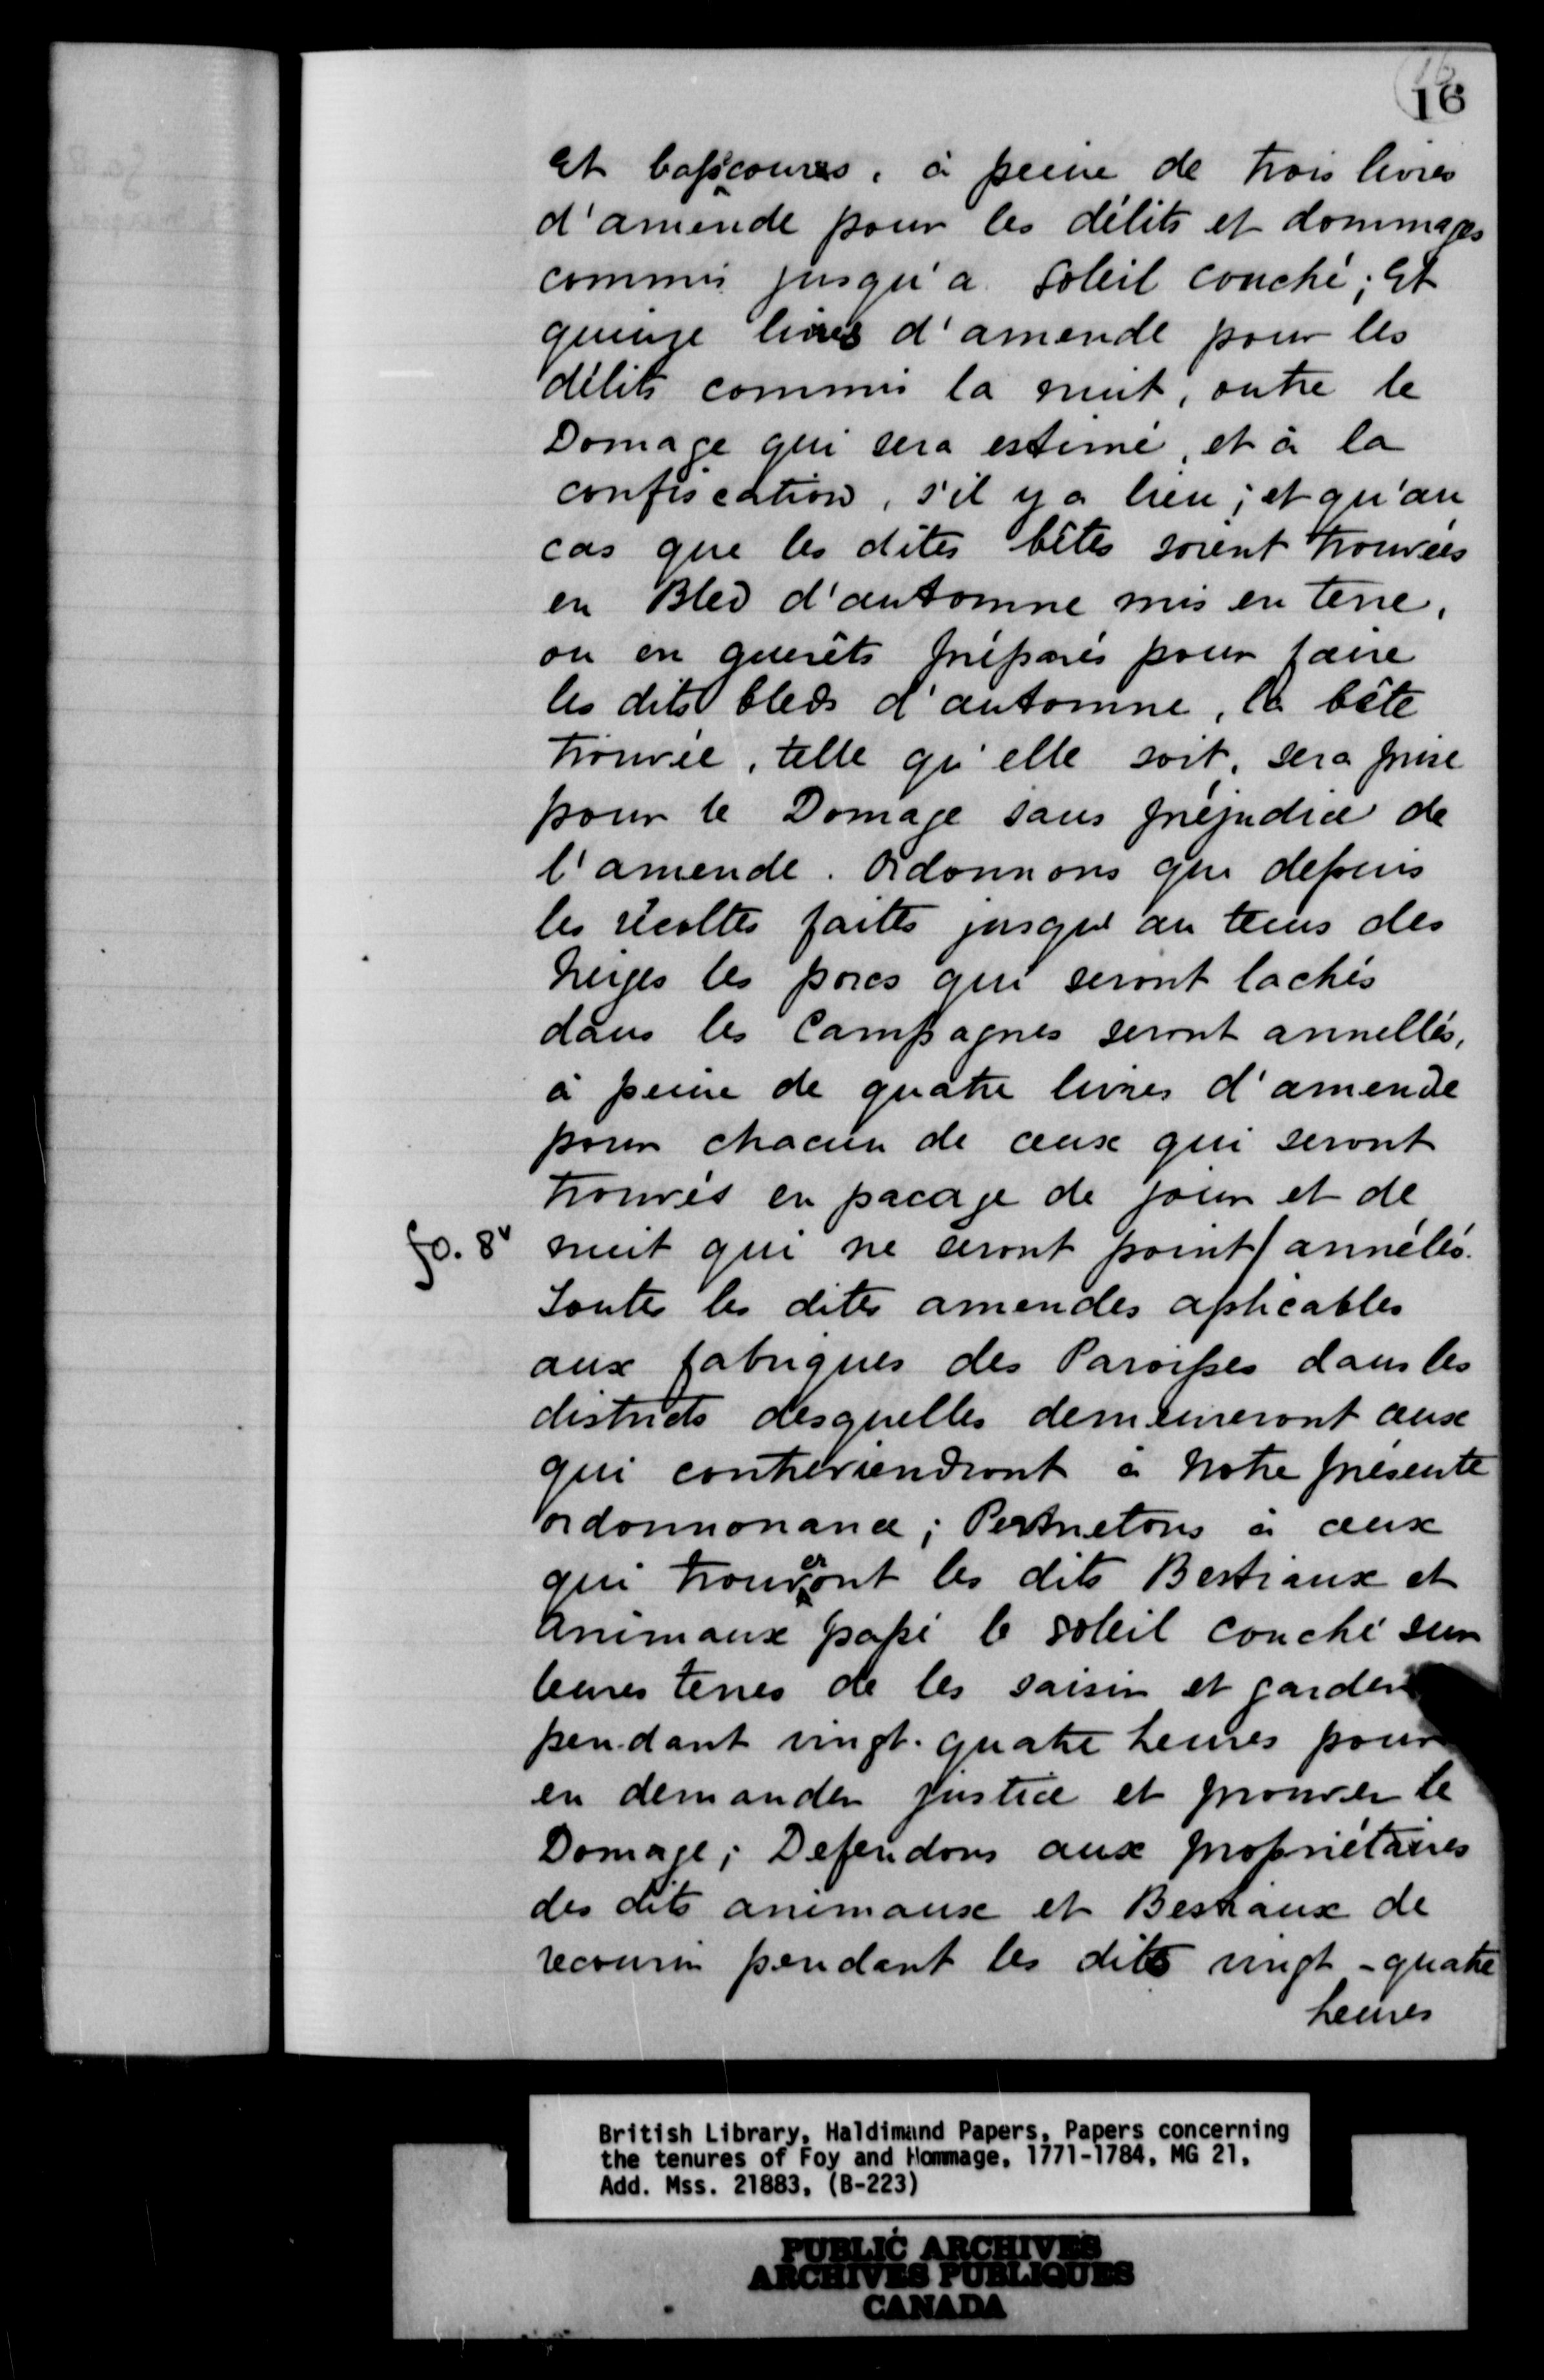 16
16
Et bassecoures, à peine de trois livres
d'amende pour les délits et dommages
commis jusqu'a soleil couché; Et
quinze livres d'amende pour les
délits commis la nuit, outre le
Domage qui sera estimé, et à la
confiscation, s'il y a lieu; et qu'au
cas que les dites bêtes soient trouvées
en Bled d'automne mis en terre,
ou en guerêts préparés pour faire
les dits bleds d'automne, la bête
trouvée, telle qu'elle soit, sera prise
pour le Domage sans préjudice de
l'amende. Ordonnons que depuis
les récoltes faites jusque au tems des
Neiges les porcs qui seront lachés
dans les Campagnes seront annellés,
à peine de quatre livres d'amende
pour chacun de ceux qui seront
trouvés en pacage de jour et de
fo. 8v nuit qui ne seront point/ annélés.
Toutes les dites amendes aplicables
aux fabriques des Paroisses dans les
districts desquelles demeureront ceux
qui contreviendront à Notre présente
ordonnonance; Permetons à ceux
qui trouveront les dits Bestiaux et
Animaux passé le soleil couché sur
leures terres de les saisir et garder
pendant vingt-quatre heures pour
en demander justice et prouver le
Domage; Defendons aux propriétaires
des dits animaux et Bestiaux de
recourir pendant les dites vingt-quatre
heures
British Library, Haldimand Papers, Papers concerning
the tenures of Foy and Hommage, 1771-1784, MG 21,
Add. Mss. 21883, (B-223)
PUBLIC ARCHIVES
ARCHIVES PUBLIQUES
CANADA